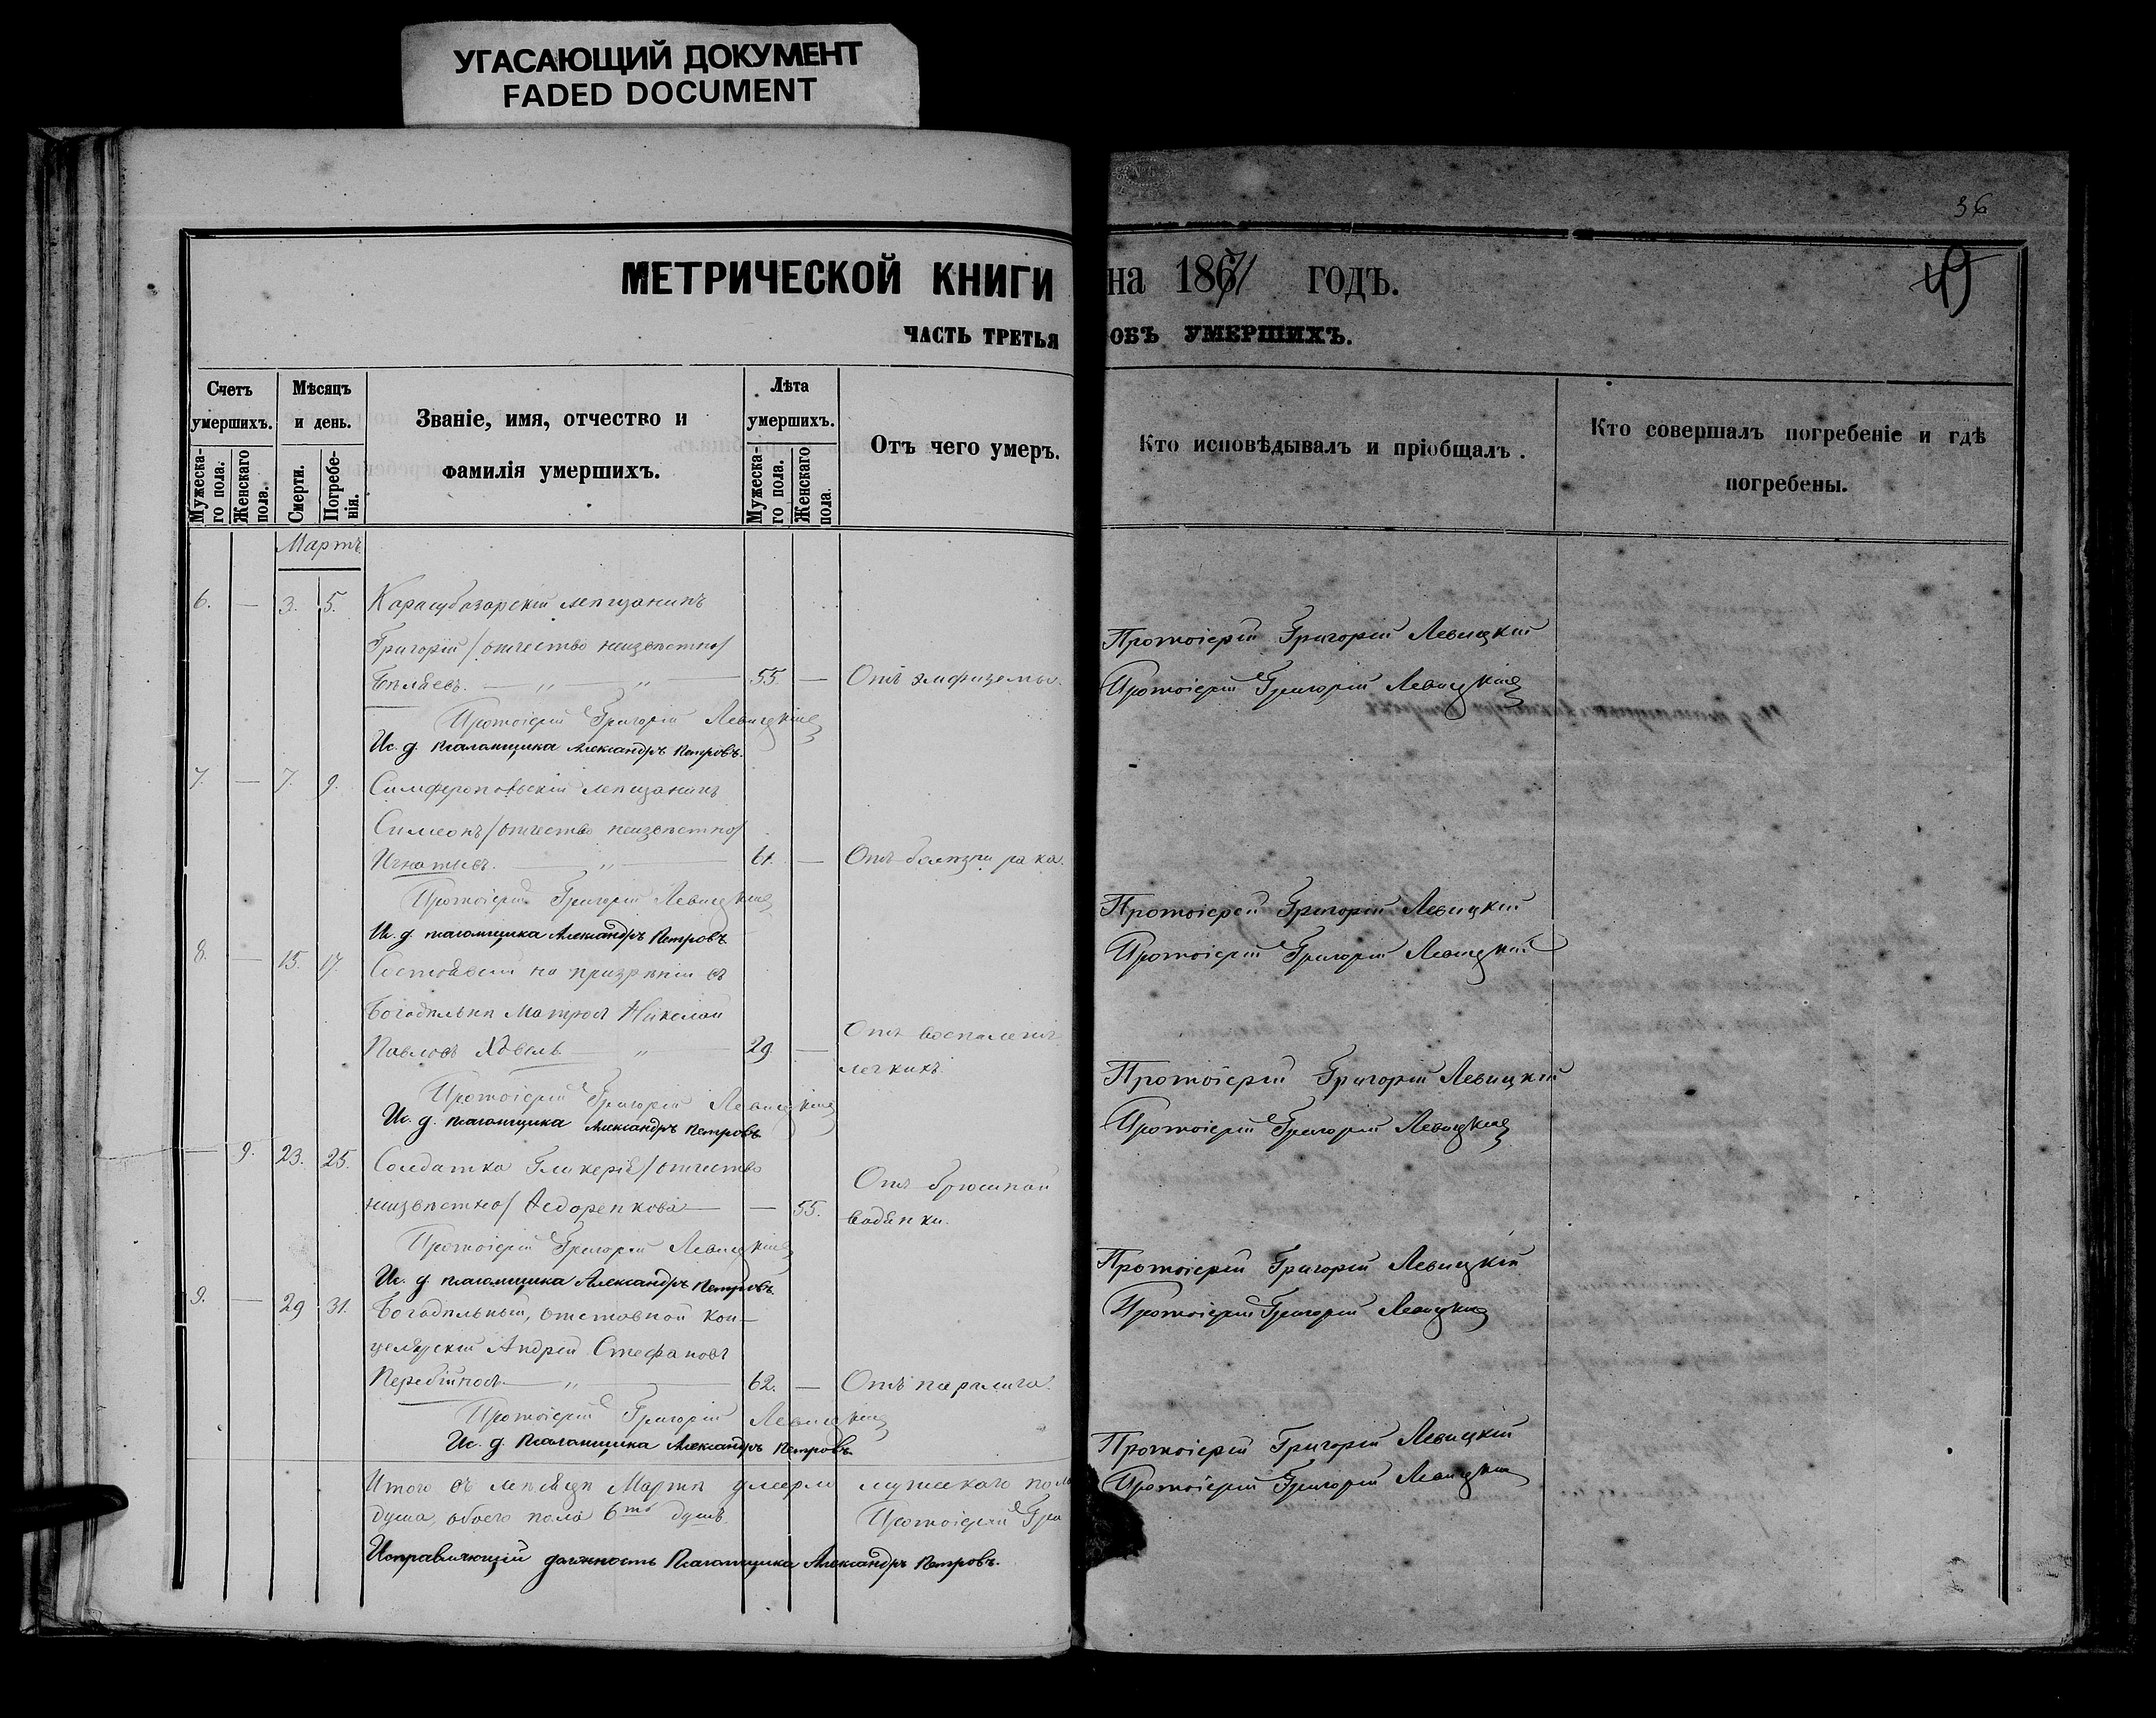 УГАСАЮЩИЙ ДОКУМЕНТ
FADED DOCUMENT
36
МЕТРИЧЕСКОЙ КНИГИ на 1871 годъ.
49
ЧАСТЬ ТРЕТЬЯ ОБЪ УМЕРШИХЪ.
Счетъ умершихъ.
Мужеска-го пола.
Женскаго пола.
Мѣсяцъ и день.
Смерти.
Погребе-нія.
Званіе, имя, отчество и
фамилія умершихъ.
Лѣта умершихъ.
Мужеска-го пола.
Женскаго пола.
Отъ чего умеръ.
Кто исповѣдывалъ и пріобщалъ.
Кто совершалъ погребеніе и гдѣ
погребены.
Мартъ
6. — 3. 5. Карасубазарскій мѣщанинъ
Григорій /отчество неизвѣстно/
Бѣляевъ. — „ — „ — 55 — Отъ эмфиземы.
Протоіерей Григорій Левицкій
Ис. д. псаломщика Александръ Петровъ.
Протоіерей Григорій Левицкій
Протоіерей Григорій Левицкій
7. — 7. 9. Симферопольскій мѣщанинъ
Симеонъ /отчество неизвѣстно/
Игнатьевъ. — „ — 61. — Отъ болѣзни рака.
Протоіерей Григорій Левицкій
Ис. д. псаломщика Александръ Петровъ
Протоіерей Григорій Левицкій
Протоіерей Григорій Левицкій
8. — 15. 17. Состоявшій на призрѣніи въ
Богадѣльнѣ Матросъ Николай
Павловъ — „ — 29. — Отъ воспаленія
легкихъ.
Протоіерей Григорій Левицкій
Ис. д. псаломщика Александръ Петровъ.
Протоіерей Григорій Левицкій
Протоіерей Григорій Левицкій
— 9. 23. 25. Солдатка Гликерія /отчество
неизвѣстно/ Ѳедоренкова — — 55. Отъ брюшной
водянки.
Протоіерей Григорій Левицкій
Ис. д. псаломщика Александръ Петровъ.
Протоіерей Григорій Левицкій
Протоіерей Григорій Левицкій
9. — 29 31. Богадѣльный, отставной кан-
целярскій Андрей Стефановъ
Перебійносъ — „ — 62. — Отъ паралича.
Протоіерей Григорій Левицкій
Ис. д. Псаломщика Александръ Петровъ.
Протоіерей Григорій Левицкій
Протоіерей Григорій Левицкій
Итого въ мѣсяцѣ Мартѣ умерло мужскаго пола
душа, обоего пола 6ть душъ.
Протоіерей Гри
Исправляющій должность Псаломщика Александръ Петровъ.